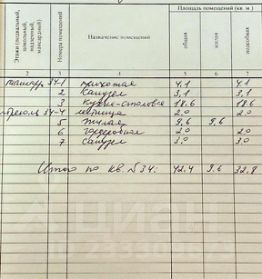 Этажи (подвальный, цокольный, надземный, мансардный)
Номера помещений
Назначение помещений
Площадь помещений (кв. м.)
общая
жилая
подсобная
2 3 4 5 6 7
34-1 прихожая 4,1 4,1
2 Санузел 3,1 3,1
3 Кухня-столовая 18.6 18.6
34-4 лестница 2.0 2.0
5 Жилая 9,6 9,6
6 гардеробная 2.0 2.0
7 Санузел 3.0 3.0
Итого по кв. №34: 42.4 9.6 32.8